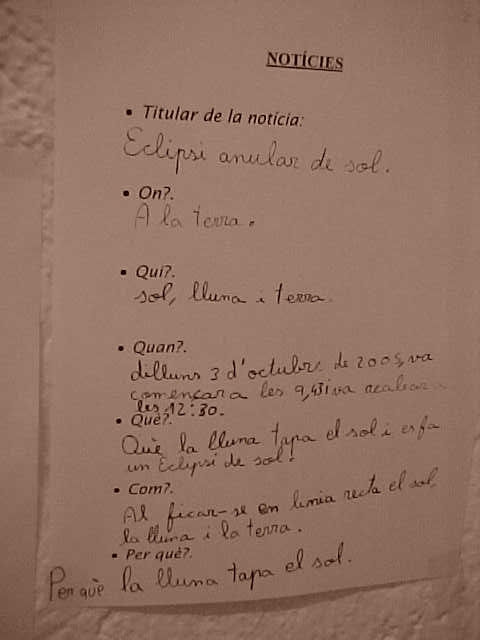 NOTÍCIES
• Titular de la notícia:
Eclipsi anular de sol.
• On?.
A la terra.
• Qui?.
sol, lluna i terra.
• Quan?.
dilluns 3 d'octubre de 2005, va
començar a les 9,43 i va acabar a
les 12:30.
• Què?.
Què la lluna tapa el sol i es fa
un Eclipsi de sol.
• Com?.
Al ficar-se en linia recta el sol,
la lluna i la terra.
• Per què?.
Per què la lluna tapa el sol.